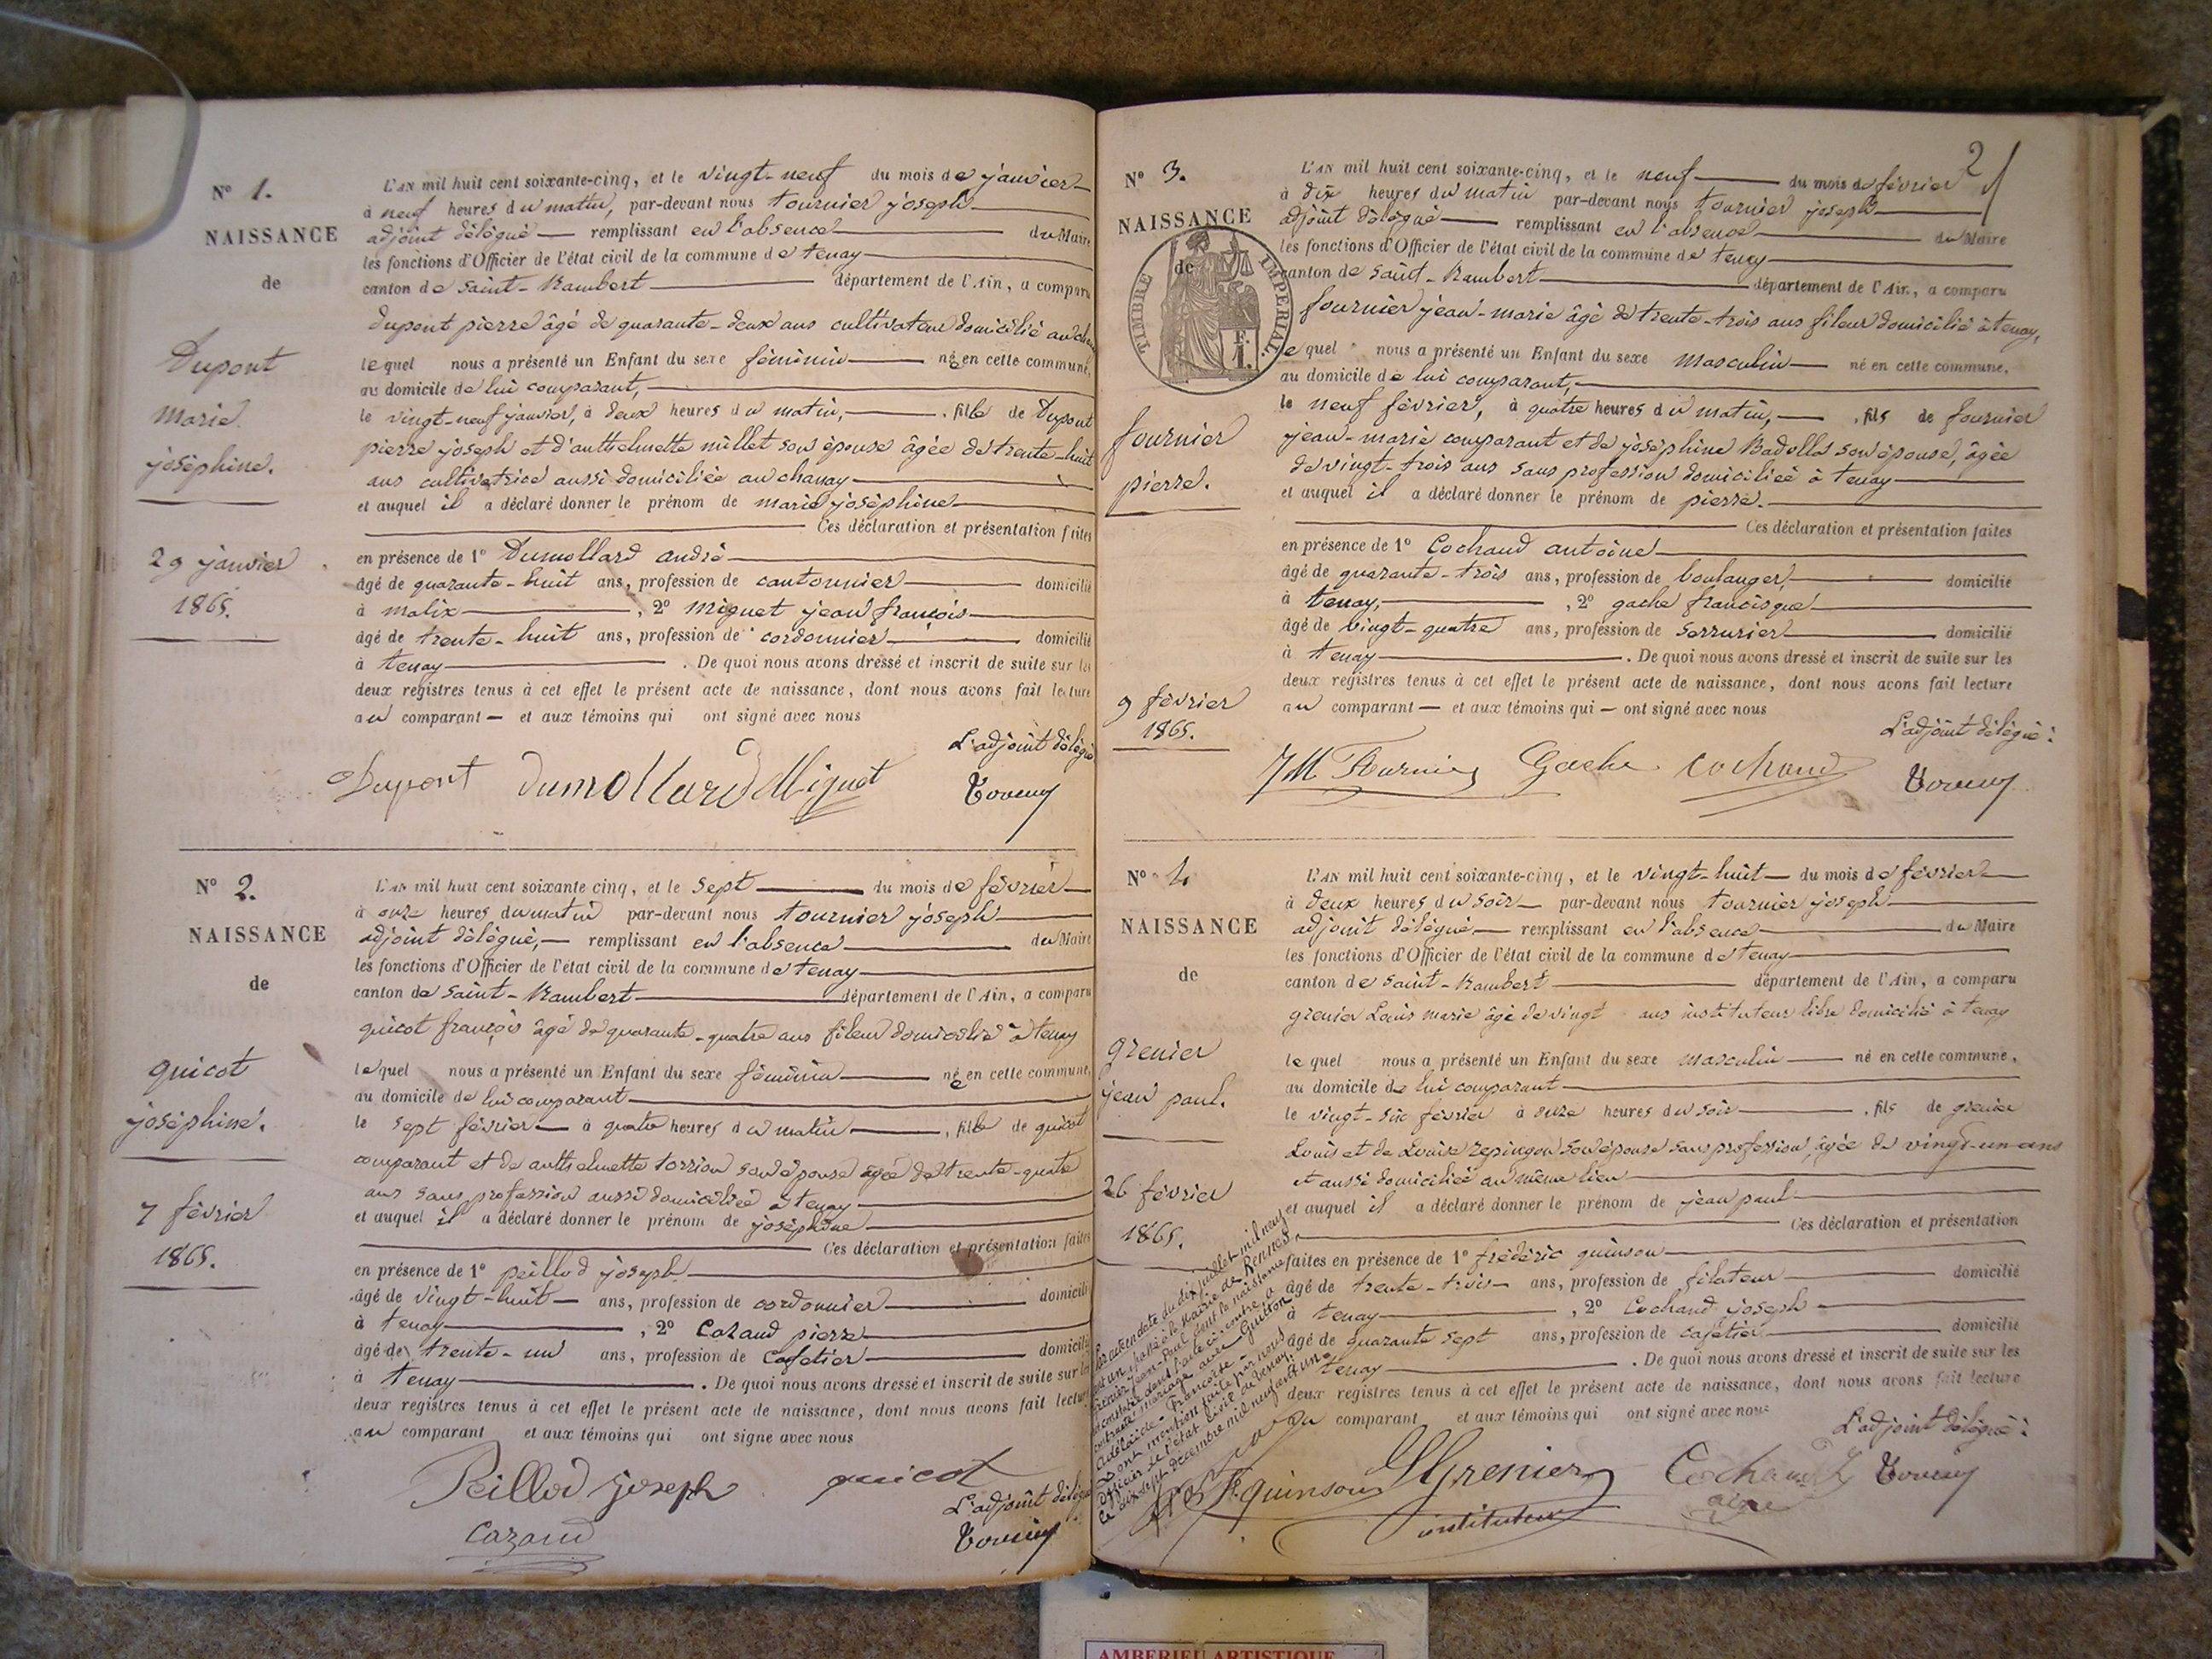 N° 1.
NAISSANCE
de
Dupont
marie
joséphine.
29 janvier
1865.
L'AN mil huit cent soixante-cinq, et le vingt-neuf du mois de janvier
à neuf heures du matin, par-devant nous tournier joseph
adjoint délégué remplissant en l'absence du Maire
les fonctions d'Officier de l'état civil de la commune de tenay
canton de saint-Rambert département de l'Ain, a comparu
dupont pierre âgé de quarante-deux ans cultivateur domicilié au
lequel nous a présenté un Enfant du sexe féminin née en cette commune,
au domicile de lui comparant,
le vingt-neuf janvier, à deux heures du matin, fille de Dupont
pierre joseph et d'anthelmette millet son épouse âgée de trente-huit
ans cultivatrice aussi domiciliée au chanay
et auquel il a déclaré donner le prénom de marie joséphine
Ces déclaration et présentation faites
en présence de 1° Dumollard andré
âgé de quarante-huit ans, profession de cantonnier domicilié
à malix, 2° Miguet jean françois
âgé de trente-huit ans, profession de cordonnier domicilié
à tenay. De quoi nous avons dressé et inscrit de suite sur les
deux registres tenus à cet effet le présent acte de naissance, dont nous avons fait lecture
au comparant et aux témoins qui ont signé avec nous
L'adjoint délégué
Dupont Dumollard Miguet
N° 2.
NAISSANCE
de
guicot
joséphine.
7 février
1865.
L'AN mil huit cent soixante cinq, et le sept du mois de février
à onze heures du matin par-devant nous tournier joseph
adjoint délégué, remplissant en l'absence du Maire
les fonctions d'Officier de l'état civil de la commune de tenay
canton de saint-Rambert département de l'Ain, a comparu
guicot françois âgé de quarante-quatre ans fileur domicilié à tenay
lequel nous a présenté un Enfant du sexe féminin née en cette commune,
au domicile de lui comparant
le sept février à quatre heures du matin, fille de guicot
comparant et de anthelmette torrion son épouse âgée de trente-quatre
ans sans profession aussi domiciliée à tenay
et auquel il a déclaré donner le prénom de joséphine
Ces déclaration et présentation faites
en présence de 1° peillod joseph
âgé de vingt-huit ans, profession de cordonnier domicilié
à tenay, 2° Cazaud pierre
âgé de trente-un ans, profession de cafetier domicilié
à tenay. De quoi nous avons dressé et inscrit de suite sur les
deux registres tenus à cet effet le présent acte de naissance, dont nous avons fait lecture
au comparant et aux témoins qui ont signé avec nous
Peillod joseph guicot
L'adjoint délégué
Cazaud
2
N° 3.
NAISSANCE
de
TIMBRE IMPERIAL
1 F.
fournier
pierre.
9 février
1865.
L'AN mil huit cent soixante-cinq, et le neuf du mois de février
à dix heures du matin par-devant nous tournier joseph
adjoint délégué remplissant en l'absence du Maire
les fonctions d'Officier de l'état civil de la commune de tenay
canton de saint-Rambert département de l'Ain, a comparu
fournier jean-marie âgé de trente-trois ans fileur domicilié à tenay,
lequel nous a présenté un Enfant du sexe masculin né en cette commune,
au domicile de lui comparant,
le neuf février, à quatre heures du matin, fils de fournier
jean-marie comparant et de joséphine Badollet son épouse, âgée
de vingt-trois ans sans profession domiciliée à tenay
et auquel il a déclaré donner le prénom de pierre.
Ces déclaration et présentation faites
en présence de 1° Cochaud antoine
âgé de quarante-trois ans, profession de boulanger, domicilié
à tenay, 2° gache francisque
âgé de vingt-quatre ans, profession de serrurier domicilié
à tenay. De quoi nous avons dressé et inscrit de suite sur les
deux registres tenus à cet effet le présent acte de naissance, dont nous avons fait lecture
au comparant et aux témoins qui ont signé avec nous
L'adjoint délégué:
JM Fournier Gache Cochaud
N° 4
NAISSANCE
de
grenier
jean paul.
26 février
1865.
L'AN mil huit cent soixante-cinq, et le vingt-huit du mois de février
à deux heures du soir par-devant nous tournier joseph
adjoint délégué remplissant en l'absence du Maire
les fonctions d'Officier de l'état civil de la commune de tenay
canton de saint-Rambert département de l'Ain, a comparu
grenier Louis marie âgé de vingt ans instituteur libre domicilié à tenay
lequel nous a présenté un Enfant du sexe masculin né en cette commune,
au domicile de lui comparant
le vingt-six février à onze heures du soir, fils de grenier
Louis et de Louise repingon son épouse sans profession, âgée de vingt-un-ans
et aussi domiciliée au même lieu
et auquel il a déclaré donner le prénom de jean paul
Ces déclaration et présentation
faites en présence de 1° frédéric quinson
âgé de trente-trois ans, profession de filateur domicilié
à tenay, 2° Cochaud joseph
âgé de quarante sept ans, profession de cafetier domicilié
tenay. De quoi nous avons dressé et inscrit de suite sur les
deux registres tenus à cet effet le présent acte de naissance, dont nous avons fait lecture
au comparant et aux témoins qui ont signé avec nous
L'adjoint délégué:
Par acte en date du dix juillet mil neuf
cent un, passé à la Mairie de Rennes,
Grenier Jean-Paul dont la naissance
est constatée dans l'acte ci-contre, a
contracté mariage avec Guitton
Adélaïde-Françoise-
Dont mention faite par nous
Officier de l'état civil de Tenay,
le dix sept décembre mil neuf cent un.
quinson Grenier Cochaud
instituteur aîné
AMBERIEU ARTISTIQUE